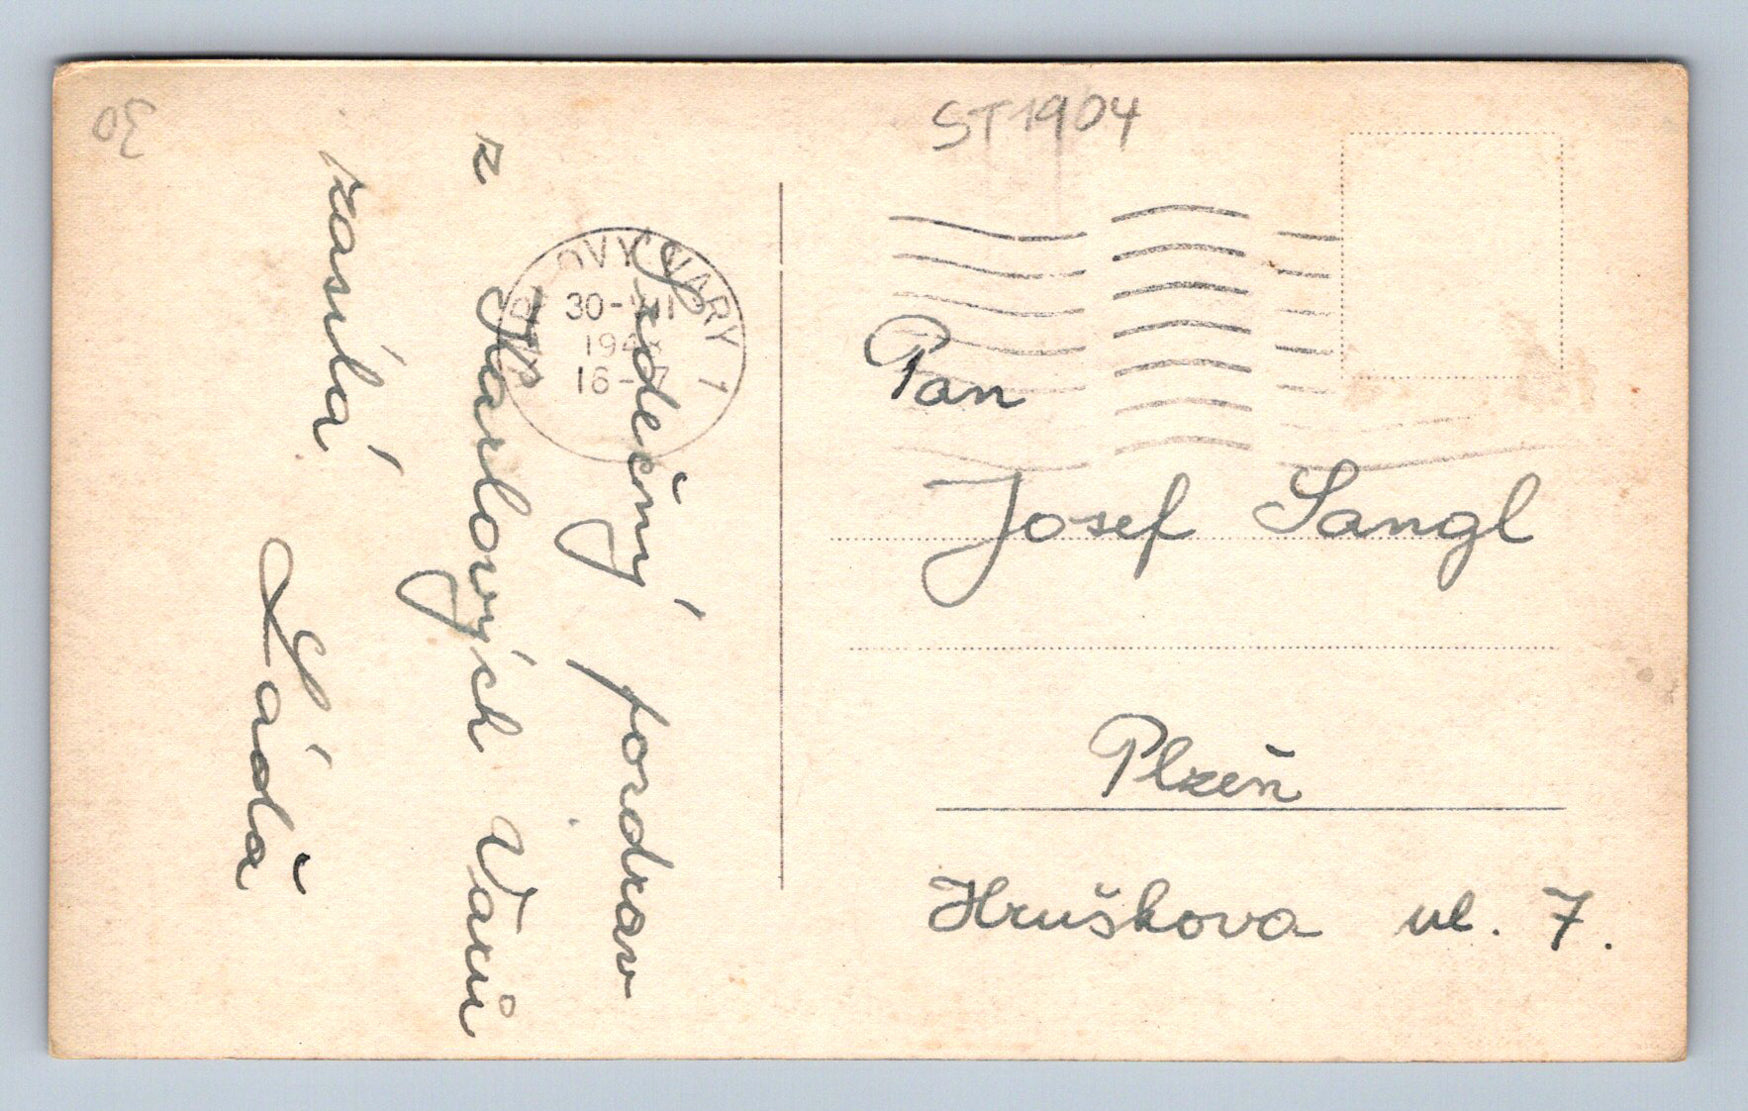 30
ST1904
Srdečný pozdrav
z Karlových Varů
zasílá
Láďa
OVY VARY 1
30-
16-
Pan
Josef Sangl
Plzeň
Hruškova ul. 7.